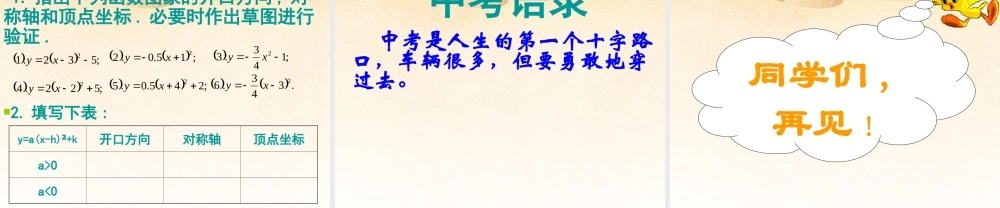 1. 指出下列函数图象的开口方向，对
称轴和顶点坐标．必要时作出草图进行
验证．
(1)y=2(x-3)²-5; (2)y=-0.5(x+1)²; (3)y=-3/4x²-1;
(4)y=2(x-2)²+5; (5)y=-0.5(x+4)²+2; (6)y=-3/4(x-3)².
2. 填写下表：
y=a(x-h)²+k 开口方向 对称轴 顶点坐标
a>0
a<0
中考语录
中考是人生的第一个十字路
口，车辆很多，但要勇敢地穿
过去。
同学们，
再见！